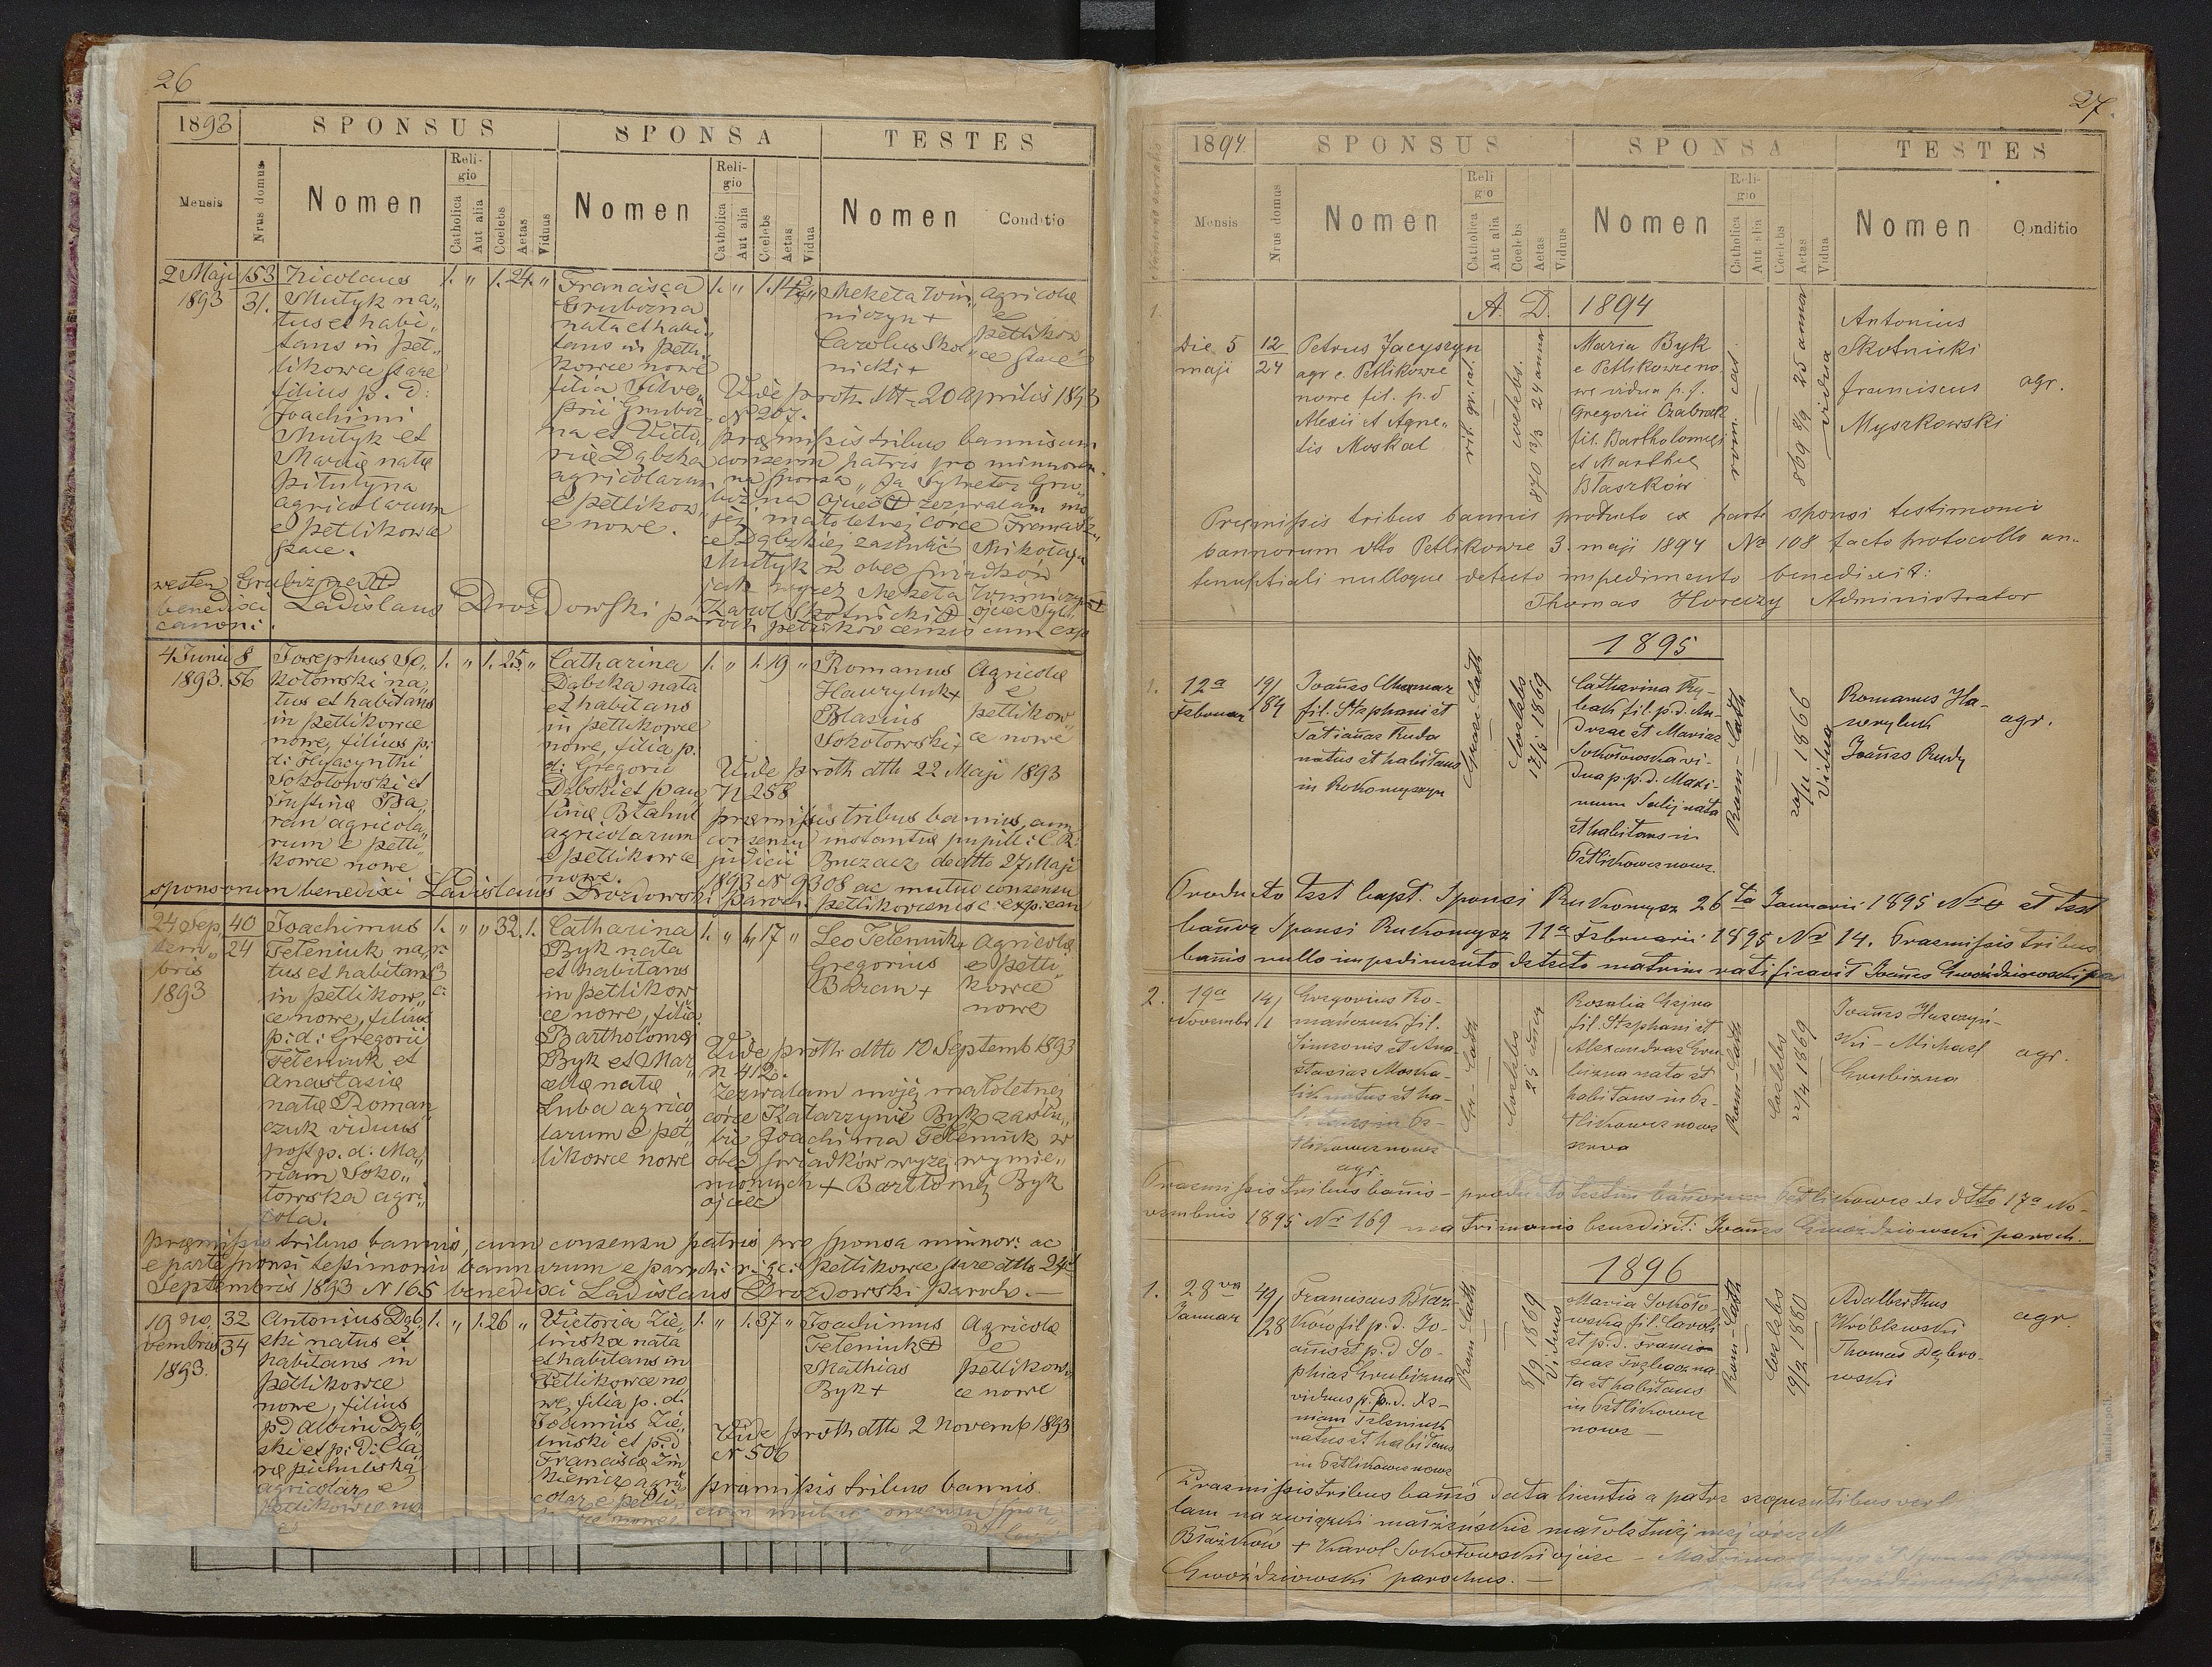 26
1893
SPONSUS
SPONSA
TESTES
Mensis
Nrus domus
Nomen
Religio
Catholica
Aut alia
Coelebs
Aetas
Viduus
Nomen
Religio
Catholica
Aut alia
Coelebs
Aetas
Vidua
Nomen
Conditio
2 Maji
1893
153
31.
Nicolaus
Mutyk na„
tus et habi„
tans in Pet„
likowce stare
filius p. d:
Joachimi
Mutyk et
Mariæ natæ
Pitulyna
agricolarum
e Petlikowce
stare.
1. „ 1. 24. „
Francisca
Grubizna
nata et habi„
tans in Petli„
kowce nowe
filia Silve„
strii Grubiz„
na et Victo„
riæ Dąbska
agricolarum
e Petlikow„
ce nowe.
1. „ 1.
Meketa Win„
niczyn +
Carolus Skot„
nicki +
Agricolæ
e
Petlikow
ce stare
Vide proth. dtt. 20 Aprilis 1893
N 207.
præmissis tribus bannis cum
consensu patris pro minoren.
na sponsa „Ja Sylwester Gru„
bizna ojciec zezwalam mo„
jéj małoletnéj córce Francisz„
ce Dąbskiéj zaślubić Mikołaja
Mutyk w obec świadków
jak wyżej Meketa Winniczyn
Karol Skotnicki ojciec Sylw
wester Grubizna
benedixi Ladislaus Drozdowski paroch Petlikovcensis cum exp
canoni.
4 Junii
1893.
8
56
Josephus So„
kołowski na„
tus et habitans
in Petlikowce
nowe, filius p:
d: Hyacynthi
Sokołowski et
Justinæ Ba„
ran agricola„
rum e Petli„
kowce nowe
1. „ 1. 25. „
Catharina
Dąbska nata
et habitans
in Petlikowce
nowe, filia p:
d: Gregorii
Dąbski et Pau„
linæ Błahut
agricolarum
e Petlikowce
nowe.
1. „ 1. 19 „
Romanus
Hawryluk +
Blasius
Sokołowski +
Agricolæ
e
Petlikow„
ce nowe
Vide proth dtto 22 Maji 1893
N 258
præmissis tribus bannis, cum
consensu instantiæ pupill: C. R.
judicii Buczacz de dtto 27 Maji
1893 N 9308 ac mutuo consensu
sponsorum benedixi Ladislaus Drozdowski paroch. Petlikovcensis c: exp: can
24 Sep„
tem„
bris
1893
40
24
Joachimus
Teleniuk na„
tus et habitans
in Petlikow„
ce nowe, filius
p: d: Gregorii
Teleniuk et
Anastasiæ
natæ Roman„
czuk viduus
post p. d: Ma„
riam Soko„
łowska agri„
cola.
1. „ „ 32. 1.
Catharina
Byk nata
et habitans
in Petlikow
ce nowe, filia
Bartholomæi
Byk et Mar„
cellæ natæ
Luba agrico
larum e Pet„
likowce nowe
1. „ 1. 17 „
Leo Teleniuk +
Gregorius
Baran +
Agricolæ
e Petli„
kowce
nowe
Vide proth. dtto 10 Septemb 1893
N 412.
Zezwalam mojéj małoletnéj
córce Katarzynie Byk zaślu„
bić Joachima Teleniuk w
obec świadków wyżej wymie„
nionych + Bartłomej Byk
ojciec
præmissis tribus bannis, cum consensu patris pro sponsa minor: ac
e parte sponsi testimonio bannorum e paroch: r: gc: Petlikowce stare dtto 24
Septembris 1893 N 165 benedixi Ladislaus Drozdowski Parochs.
19 No„
vembris
1893.
32
34
Antonius Dąb„
ski natus et
habitans in
Petlikowce
nowe, filius
p d Albini Dąb„
ski et p: d: Cla„
ræ Pichulska
agricolar. e
Petlikowce no
1. „ 1. 26 „
Victoria Zie„
lińska nata
et habitans in
Petlikowce no
we, filia p. d.
Joannis Zie„
liński et p: d
Franciscæ
agri„
colar. e Petli„
1. „ 1. 37 „
Joachimus
Teleniuk
Mathias
Byk +
Agricolæ
e
Petlikow„
ce nowe
Vide proth dtto 2 Novemb 1893
N 506
præmissis tribus bannis
27.
1894
SPONSUS
SPONSA
TESTES
Mensis
Nrus domus
Nomen
Religio
Catholica
Aut alia
Coelebs
Aetas
Viduus
Nomen
Religio
Catholica
Aut alia
Coelebs
Aetas
Vidua
Nomen
Conditio
A. D. 1894
1.
Die 5
maji
12
24
Petrus Jacyszyn
agr. e Petlikowce
nowe fil. p. d
Alexii et Agne„
tis Moskal
rit. gr. cat.
coelebs.
870 13/3 24 annor
Maria Byk
e Petlikowce no
we vidua p. f.
Gregorii Czabrak
fil. Bartholomæi
et Marthæ
Błaszków
rom. cat.
869 9/9 25 annor
vidua
Antonius
Skotnicki
Franciscus
Myszkowski
agr.
Præmissis tribus bannis producto ex parte sponsi testimonio
bannorum dtto Petlikowce 3. maji 1894 No 108 facto protocollo an„
tenuptiali nulloque detecto impedimento benedixit:
Thomas Horeczy Administrator
1895
1.
12a
Februar
19/
184
Joanes
fil. Stephani et
Tatianae Ruda
natus et habitans
in Rukomysz
Graec. Cath
Coelebs
17/5 1869
Catharina Ry„
bak fil. p. d. An„
dreae et Mariae
Sokołowska vi„
dua p. p. d. Maxi„
mum Salij nata
et habitans in
Petlikowce nowe.
Rom-Cath
20/11 1866
Vidua
Romanus Ha„
wryluk
Joanes Rudy
agr.
Producto test bapt. Sponsi Rukomysz 26ta Januarii 1895 No 8 et test
banor Sponsi Rukomysz 11a Februarii 1895 No 14. Praemissis tribus
banis nullo impedimento detecto matrim ratificavit Joanes Gwoździowski par
2.
19a
Novembr
14/
1
Gregorius Ro„
mańczuk fil.
Simeonis et Ana„
stasiae Moska„
lik natus et ha„
bitans in Pe„
tlikowce nowe
agr.
Gr-Cath
Coelebs
25 annor
Rosalia Gajna
fil. Stephani et
Alexandrae Gru
bizna nata et
habitans in Pe„
tlikowce nowe
serva
Rom-Cath
Coelebs
22/4 1869
Joanes Huszczyń„
ski - Michael
Grubizna
agr.
Praemissis tribus banis - producto testim banorum Petlikowce de dtto 17a No„
vembris 1895 No 169 matrimonio benedixit: Joanes Gwoździowski paroch.
1896
1.
28va
Januar
49/
/28
Franciscus Błaż
ków fil p. d. Jo„
annis et p. d So„
phiae Grubizna
viduus p. p. d. Xe„
niam Teleniuk
natus et habitans
in Petlikowce nowe
Rom-Cath
8/9 1869
Viduus
Maria Sokoło„
wska fil. Caroli
et p. d. Franci
scae na
ta et habitans
in Petlikowce
nowe
Rom-Cath
Coelebs
19/2 1880
Adalbertus
Wróblewski
Thomas Dąbro„
wski
agr
Praemissis tribus banis data licentia a patre sequentibus verb
lam na związki małżeńskie małoletniéj mej córce M
Błażków + Karol Sokołowski ojciec -
Gwoździowski parochus.